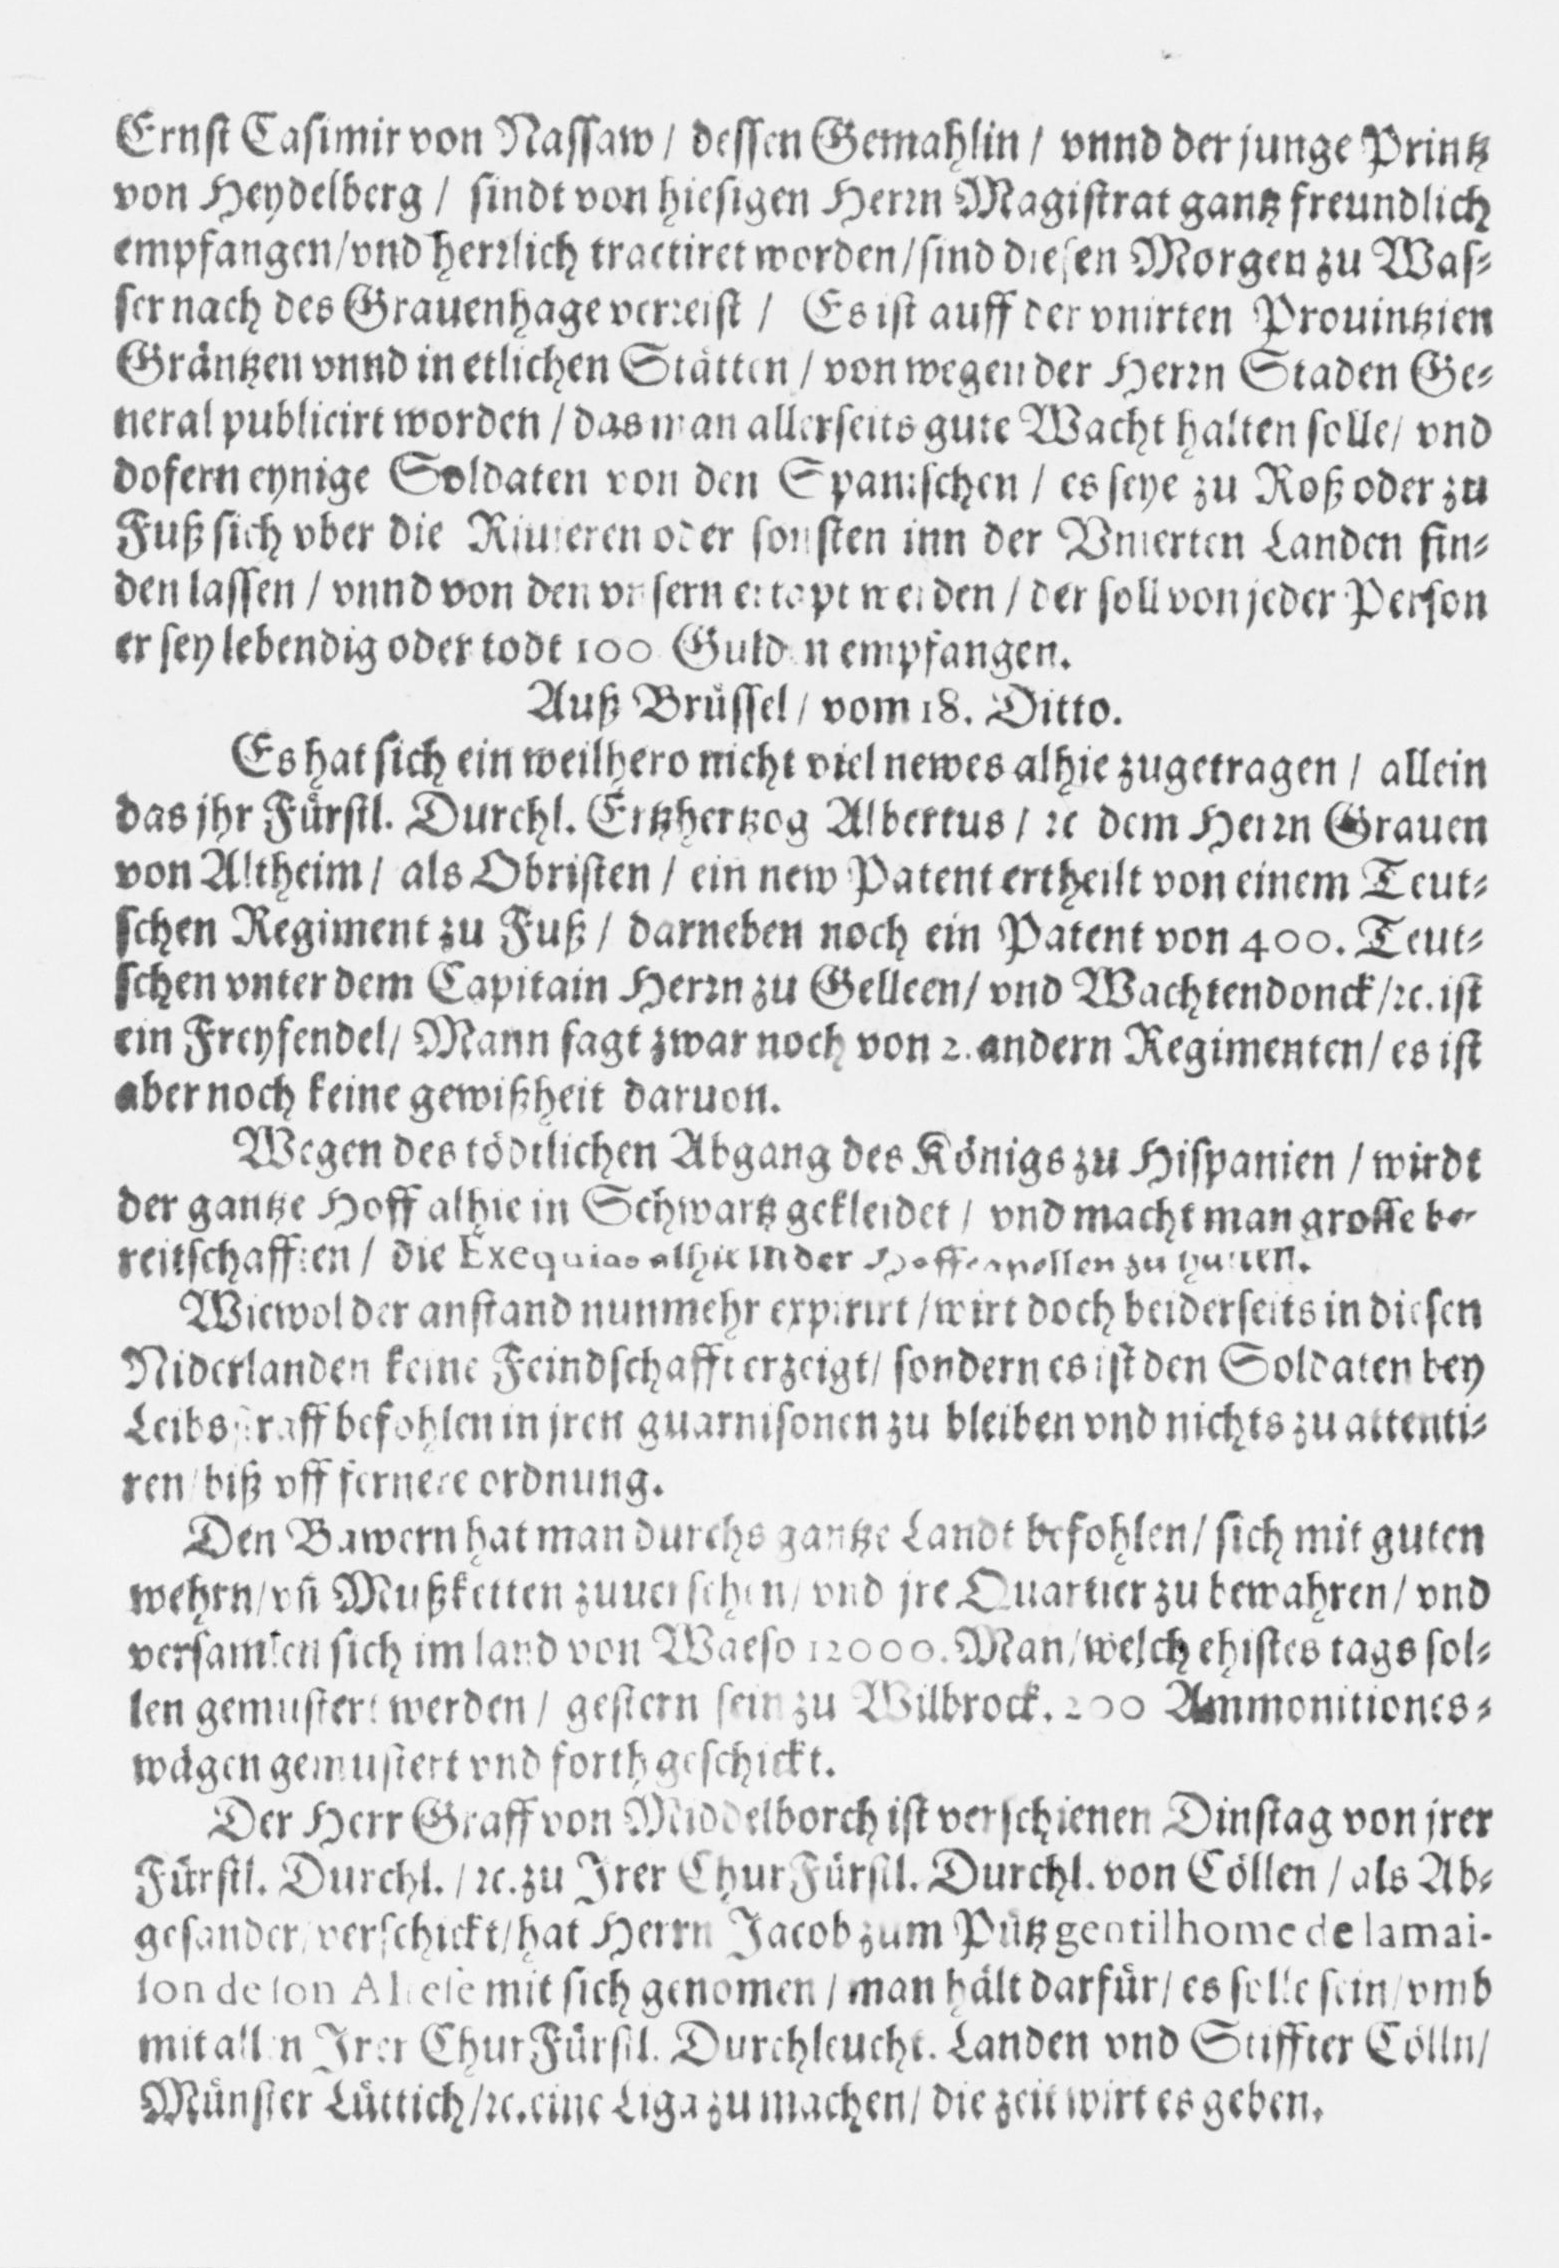 Ernst Casimir von Nassaw / dessen Gemahlin / vnnd der junge Printz
von Heydelberg / sindt von hiesigen Herrn Magistrat gantz freundlich
empfangen / vnd herrlich tractiret worden / sind diesen Morgen zu Was-
ser nach des Grauenhage verreist / Es ist auff der vnirten Prouintzien
Gräntzen vnnd in etlichen Stätten / von wegen der Herrn Staden Ge-
neral publicirt worden / das man allerseits gute Wacht halten solle / vnd
dofern eynige Soldaten von den Spanischen / es seye zu Roß oder zu
Fuß sich vber die Riuieren oder sonsten inn der Vnierten Landen fin-
den lassen / vnnd von den vnsern ertapt werden / der soll von jeder Person
er sey lebendig oder todt 100 Gulden empfangen.
Auß Brüssel / vom 18. Ditto.
Es hat sich ein weilhero nicht viel newes alhie zugetragen / allein
das jhr Fürstl. Durchl. Ertzhertzog Albertus / ꝛc dem Herrn Grauen
von Altheim / als Obristen / ein new Patent ertheilt von einem Teut-
schen Regiment zu Fuß / darneben noch ein Patent von 400. Teut-
schen vnter dem Capitain Herrn zu Gelleen / vnd Wachtendonck / ꝛc. ist
ein Freyfendel / Mann sagt zwar noch von 2. andern Regimenten / es ist
aber noch keine gewißheit daruon.
Wegen des tödtlichen Abgang des Königs zu Hispanien / wirdt
der gantze Hoff alhie in Schwartz gekleidet / vnd macht man grosse be-
reitschafften / die Exequias alhie in der Hoffcapellen zu halten.
Wiewol der anstand nunmehr expirirt / wirt doch beiderseits in diesen
Niderlanden keine Feindschafft erzeigt / sondern es ist den Soldaten bey
Leibsstraff befohlen in jren guarnisonen zu bleiben vnd nichts zu attenti-
ren / biß vff fernere ordnung.
Den Bawern hat man durchs gantze Landt befohlen / sich mit guten
wehrn / vñ Mußketten zuuersehen / vnd jre Quartier zu bewahren / vnd
versamlen sich im land von Waeso 12000. Man / welch ehistes tags sol-
len gemustert werden / gestern sein zu Wilbrock. 200 Ammonitiones-
wägen gemustert vnd forth geschickt.
Der Herr Graff von Middelborch ist verschienen Dinstag von jrer
Fürstl. Durchl. / ꝛc. zu Irer ChurFürstl. Durchl. von Cöllen / als Ab-
gesander / verschickt / hat Herrn Jacob zum Pütz gentilhome de la mai-
son de son Altese mit sich genomen / man hält darfür / es solle sein / vmb
mit allen Irer ChurFürstl. Durchleucht. Landen vnd Stiffter Cölln /
Münster Lüttich / ꝛc. eine Liga zu machen / die zeit wirt es geben.